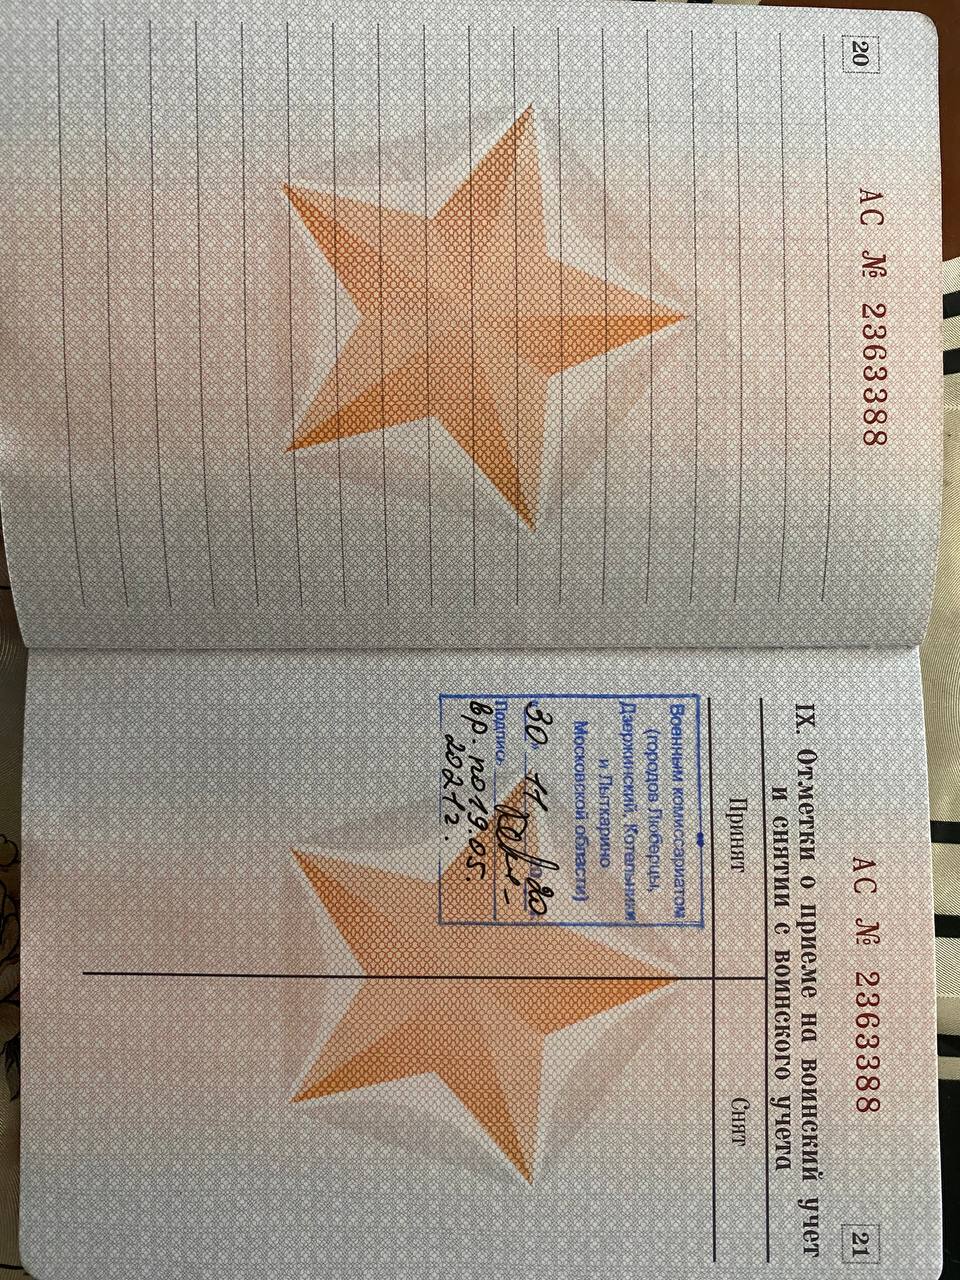 20
АС № 2363388
АС № 2363388
21
IX. Отметки о приеме на воинский учет
и снятии с воинского учета
Принят
Снят
Военным комиссариатом
(городов Люберцы,
Дзержинский, Котельники
и Лыткарино
Московской области)
"30" 11 20
Подпись
вр. по 19.05.
2021г.